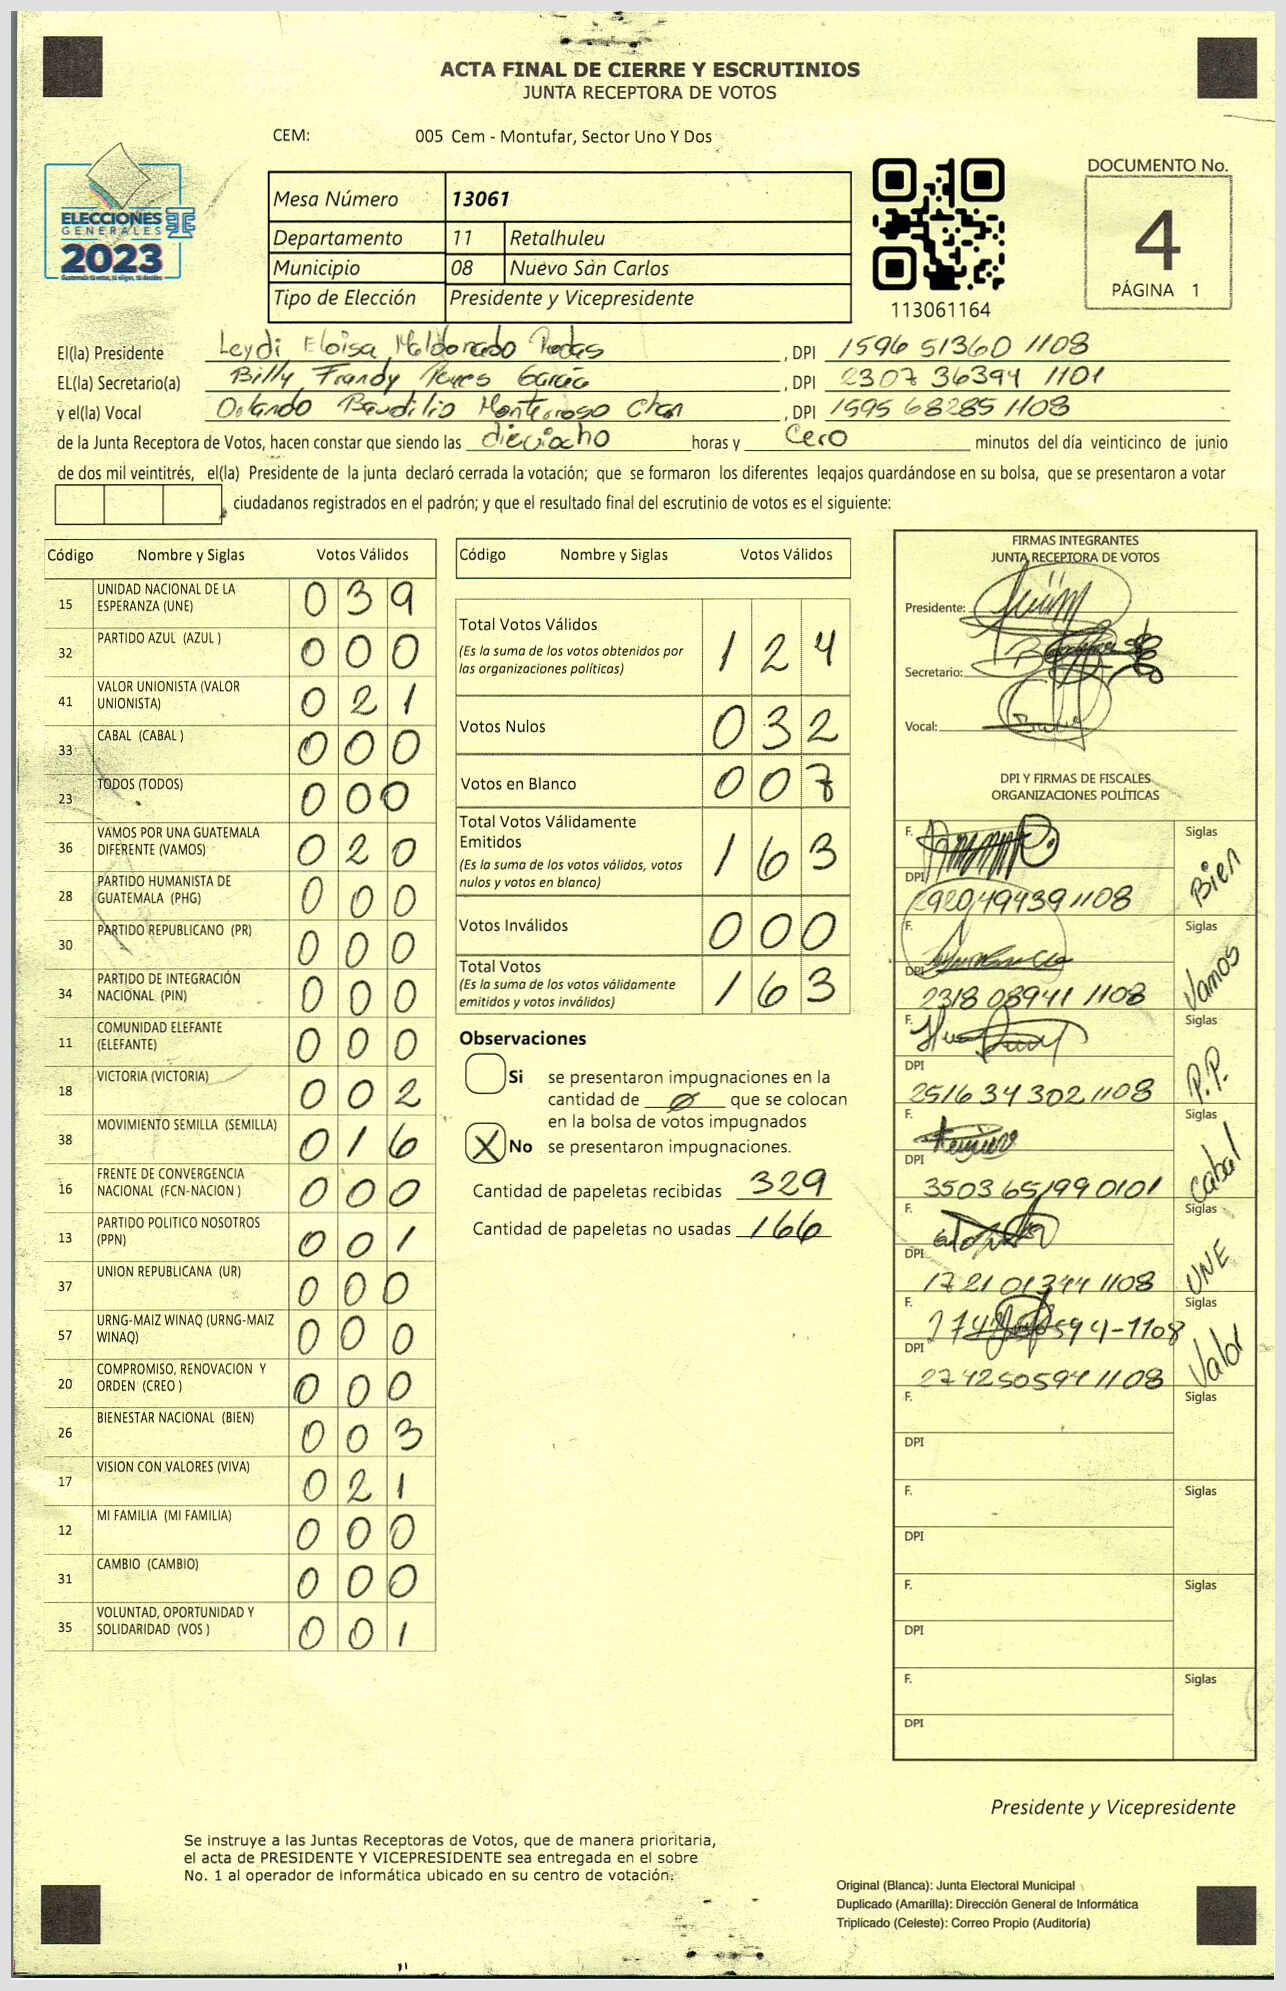 ACTA FINAL DE CIERRE Y ESCRUTINIOS
JUNTA RECEPTORA DE VOTOS
CEM: 005 Cem - Montufar, Sector Uno Y Dos
ELECCIONES
GENERALES
2023
Mesa Número 13061
Departamento 11 Retalhuleu
Municipio 08 Nuevo San Carlos
Tipo de Elección Presidente y Vicepresidente
113061164
DOCUMENTO No.
4
PÁGINA 1
El(la) Presidente Leydi Eloisa Maldonado Rodas, DPI 1596 51360 1108
EL(la) Secretario(a) Billy Frandy Reyes García, DPI 2307 36394 1101
y el(la) Vocal Orlando Baudilio Monterroso Chan, DPI 1595 68285 1108
de la Junta Receptora de Votos, hacen constar que siendo las dieciocho horas y cero minutos del día veinticinco de junio
de dos mil veintitrés, el(la) Presidente de la junta declaró cerrada la votación; que se formaron los diferentes legajos guardándose en su bolsa, que se presentaron a votar
ciudadanos registrados en el padrón; y que el resultado final del escrutinio de votos es el siguiente:
Código Nombre y Siglas Votos Válidos
15 UNIDAD NACIONAL DE LA
ESPERANZA (UNE) 0 3 9
32 PARTIDO AZUL (AZUL ) 0 0 0
41 VALOR UNIONISTA (VALOR
UNIONISTA) 0 2 1
33 CABAL (CABAL ) 0 0 0
23 TODOS (TODOS) 0 0 0
36 VAMOS POR UNA GUATEMALA
DIFERENTE (VAMOS) 0 2 0
28 PARTIDO HUMANISTA DE
GUATEMALA (PHG) 0 0 0
30 PARTIDO REPUBLICANO (PR) 0 0 0
34 PARTIDO DE INTEGRACIÓN
NACIONAL (PIN) 0 0 0
11 COMUNIDAD ELEFANTE
(ELEFANTE) 0 0 0
18 VICTORIA (VICTORIA) 0 0 2
38 MOVIMIENTO SEMILLA (SEMILLA) 0 1 6
16 FRENTE DE CONVERGENCIA
NACIONAL (FCN-NACION ) 0 0 0
13 PARTIDO POLITICO NOSOTROS
(PPN) 0 0 1
37 UNION REPUBLICANA (UR) 0 0 0
57 URNG-MAIZ WINAQ (URNG-MAIZ
WINAQ) 0 0 0
20 COMPROMISO, RENOVACION Y
ORDEN (CREO ) 0 0 0
26 BIENESTAR NACIONAL (BIEN) 0 0 3
17 VISION CON VALORES (VIVA) 0 2 1
12 MI FAMILIA (MI FAMILIA) 0 0 0
31 CAMBIO (CAMBIO) 0 0 0
35 VOLUNTAD, OPORTUNIDAD Y
SOLIDARIDAD (VOS ) 0 0 1
Código Nombre y Siglas Votos Válidos
Total Votos Válidos 1 2 4
(Es la suma de los votos obtenidos por
las organizaciones políticas)
Votos Nulos 0 3 2
Votos en Blanco 0 0 7
Total Votos Válidamente
Emitidos 1 6 3
(Es la suma de los votos válidos, votos
nulos y votos en blanco)
Votos Inválidos 0 0 0
Total Votos 1 6 3
(Es la suma de los votos válidamente
emitidos y votos inválidos)
Observaciones
Si se presentaron impugnaciones en la
cantidad de 0 que se colocan
en la bolsa de votos impugnados
X No se presentaron impugnaciones.
Cantidad de papeletas recibidas 329
Cantidad de papeletas no usadas 166
FIRMAS INTEGRANTES
JUNTA RECEPTORA DE VOTOS
Presidente:
Secretario:
Vocal:
DPI Y FIRMAS DE FISCALES
ORGANIZACIONES POLÍTICAS
F. Siglas
DPI 292049439 1108 Bien
F. Siglas
DPI 2318 08941 1108 Vamos
F. Siglas
DPI 2516 34 302 1108 P.P.
F. Siglas
DPI 3503 65199 0101 Cabal
F. Siglas
DPI 1721 01344 1108 UNE
F. Siglas
DPI 274250594 1108 Valor
F. Siglas
DPI
F. Siglas
DPI
F. Siglas
DPI
F. Siglas
DPI
Presidente y Vicepresidente
Se instruye a las Juntas Receptoras de Votos, que de manera prioritaria,
el acta de PRESIDENTE Y VICEPRESIDENTE sea entregada en el sobre
No. 1 al operador de informática ubicado en su centro de votación.
Original (Blanca): Junta Electoral Municipal
Duplicado (Amarilla): Dirección General de Informática
Triplicado (Celeste): Correo Propio (Auditoría)